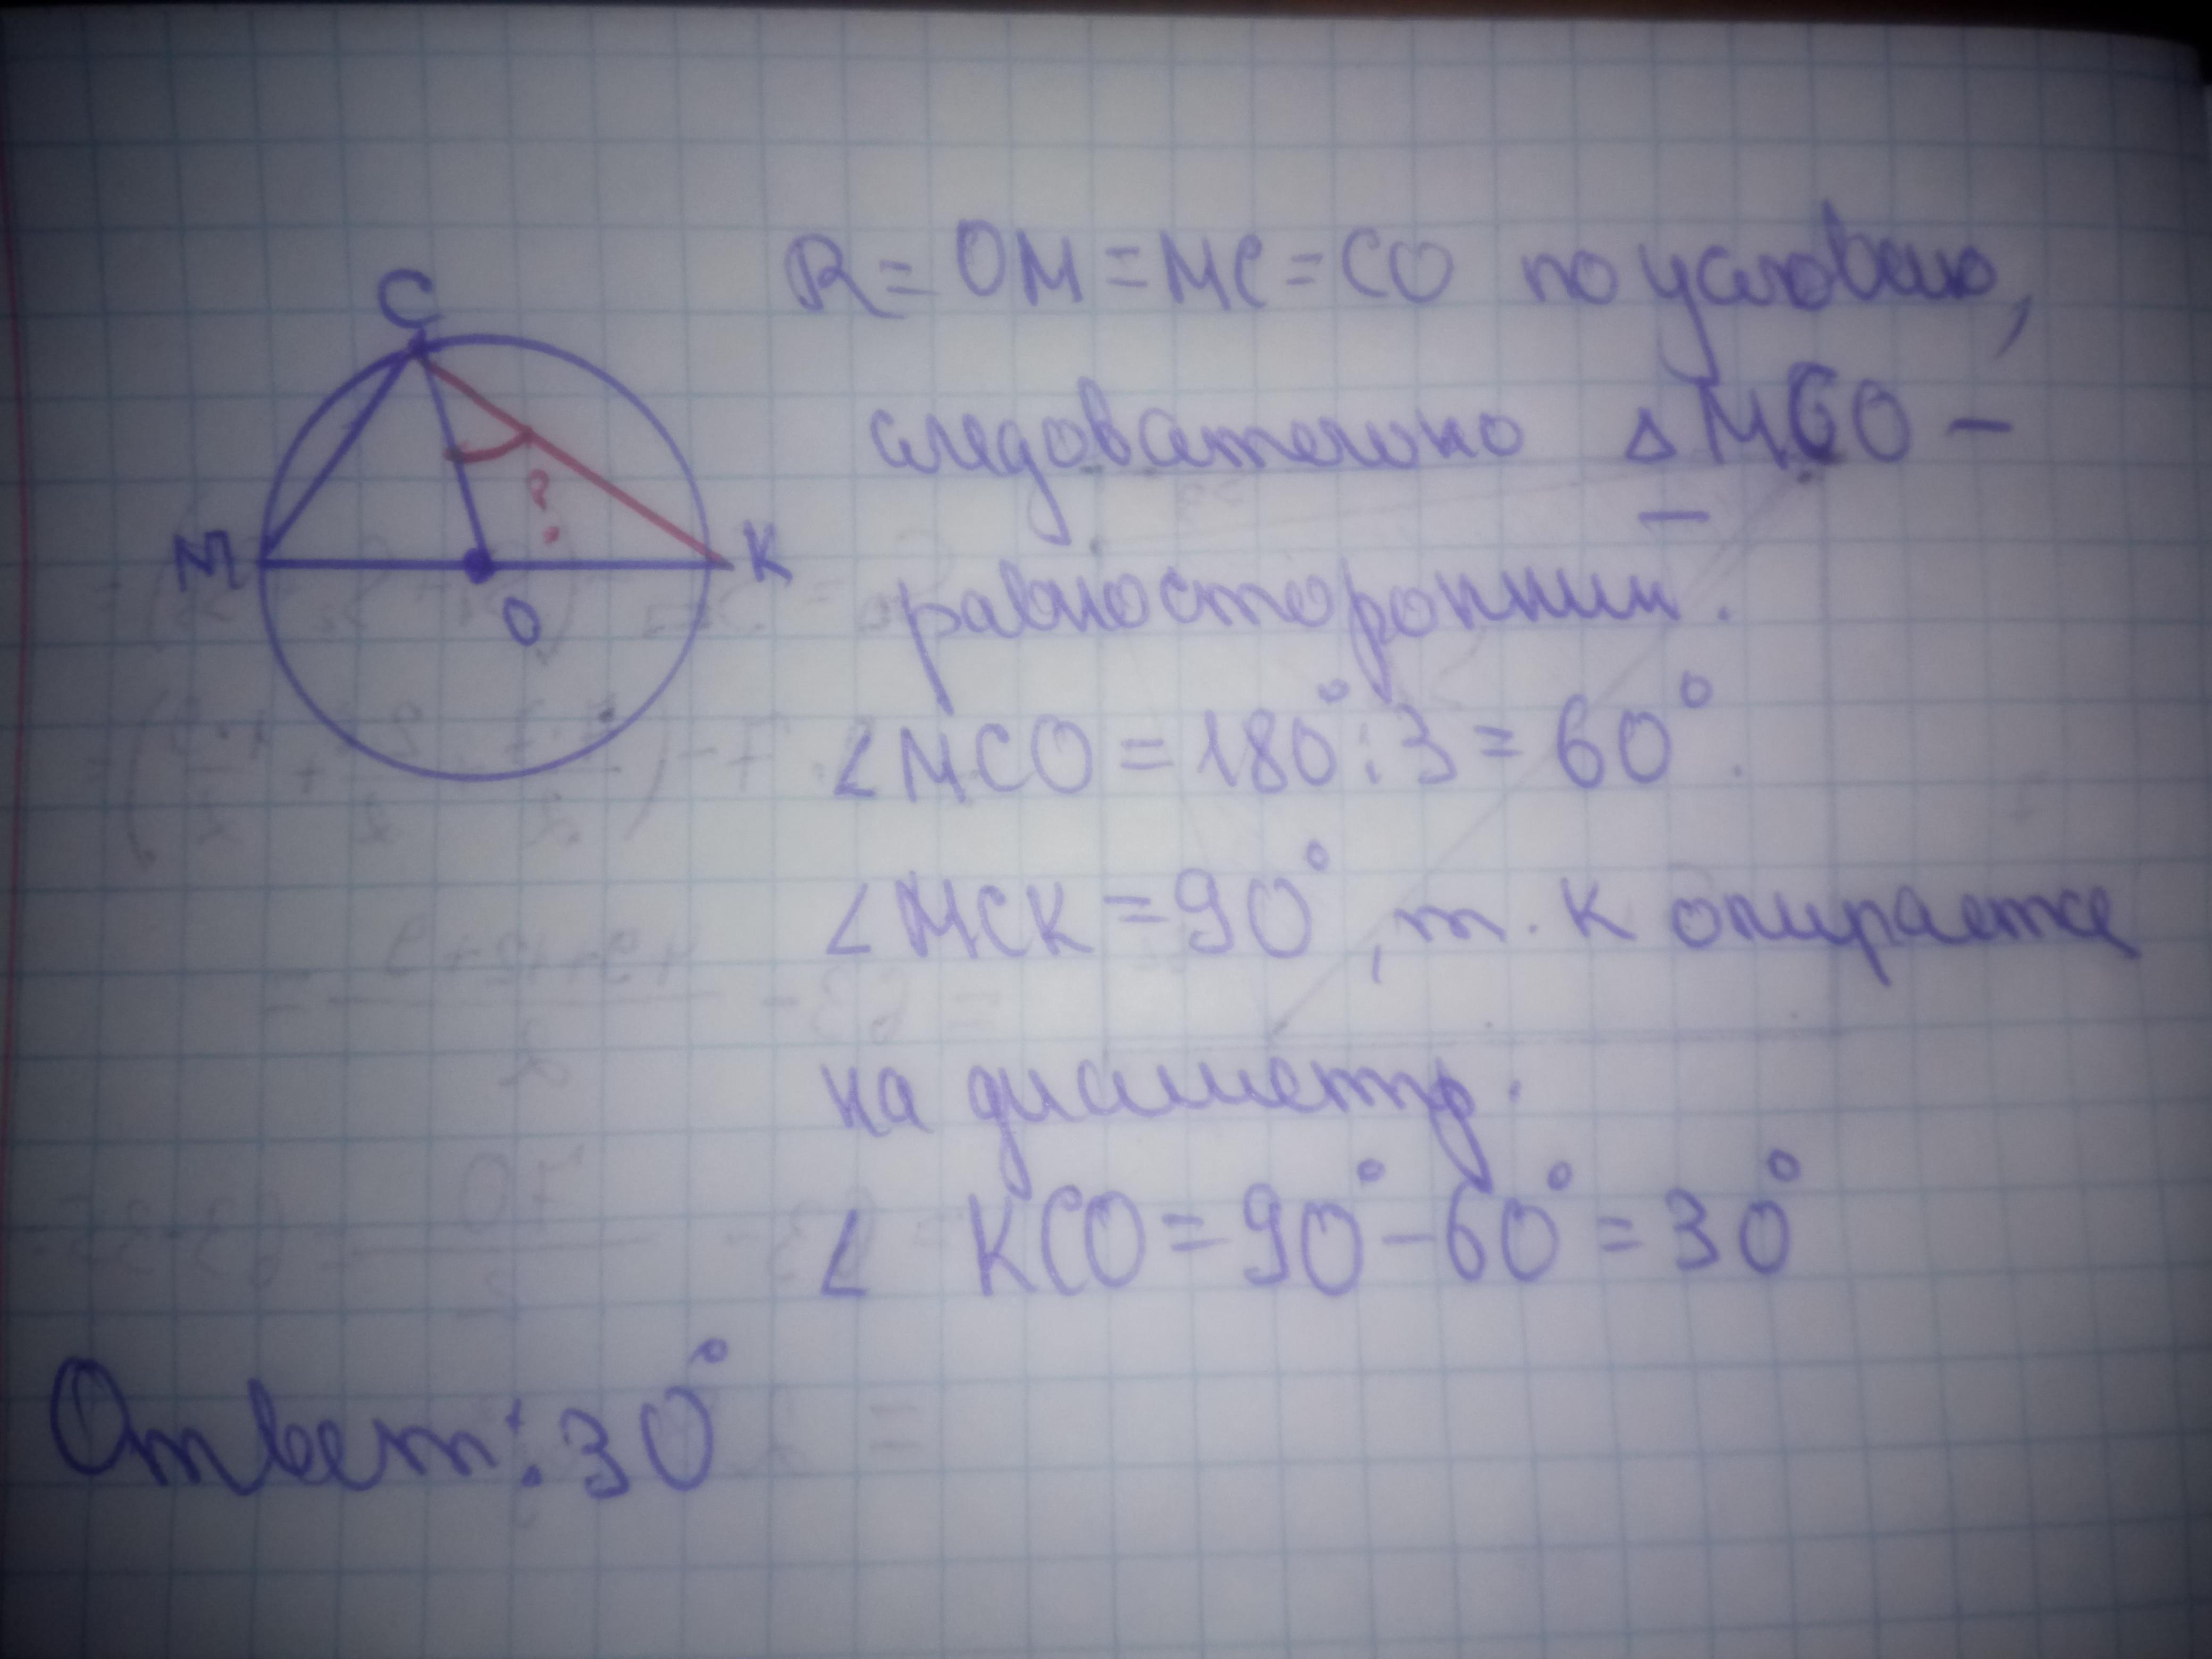 C
M
O
K
?
R = OM = MC = CO по условию,
следовательно Δ MCO –
– равносторонний.
∠MCO = 180° : 3 = 60°.
∠MCK = 90°, т. к опирается
на диаметр.
∠ KCO = 90° – 60° = 30°
Ответ: 30°